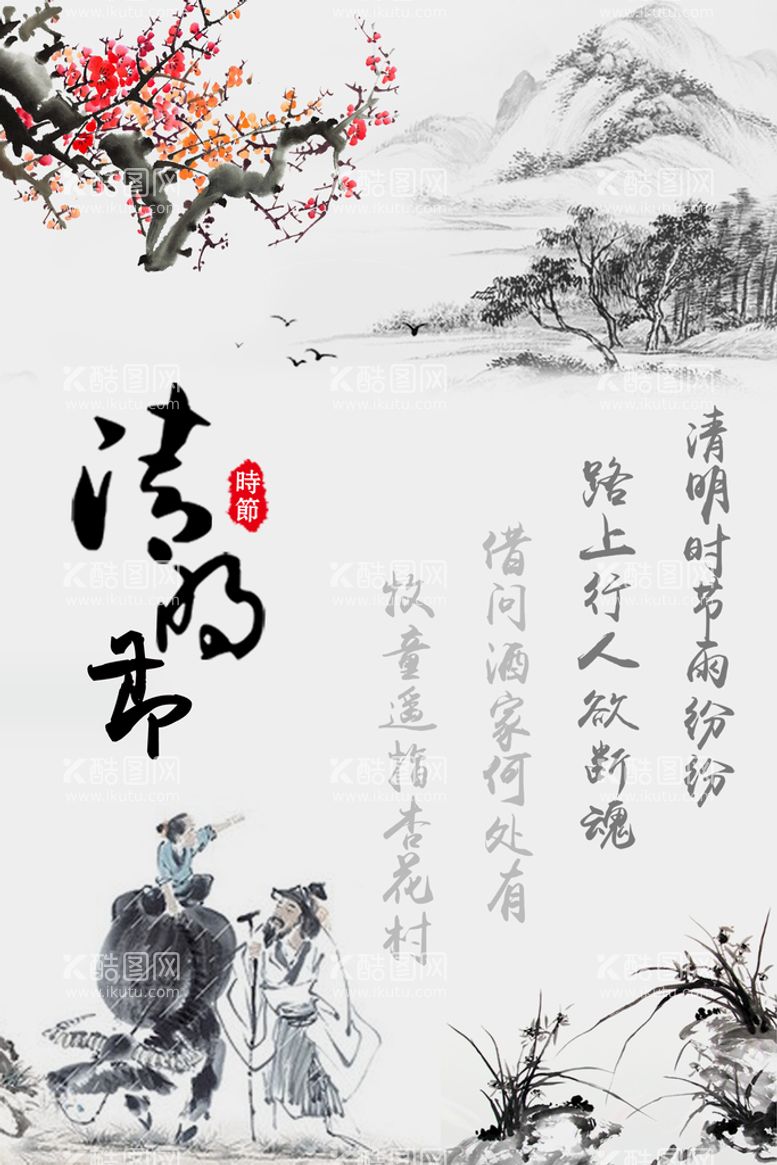 清明节
時節
清明时节雨纷纷
路上行人欲断魂
借问酒家何处有
牧童遥指杏花村
K酷图网
www.ikutu.com